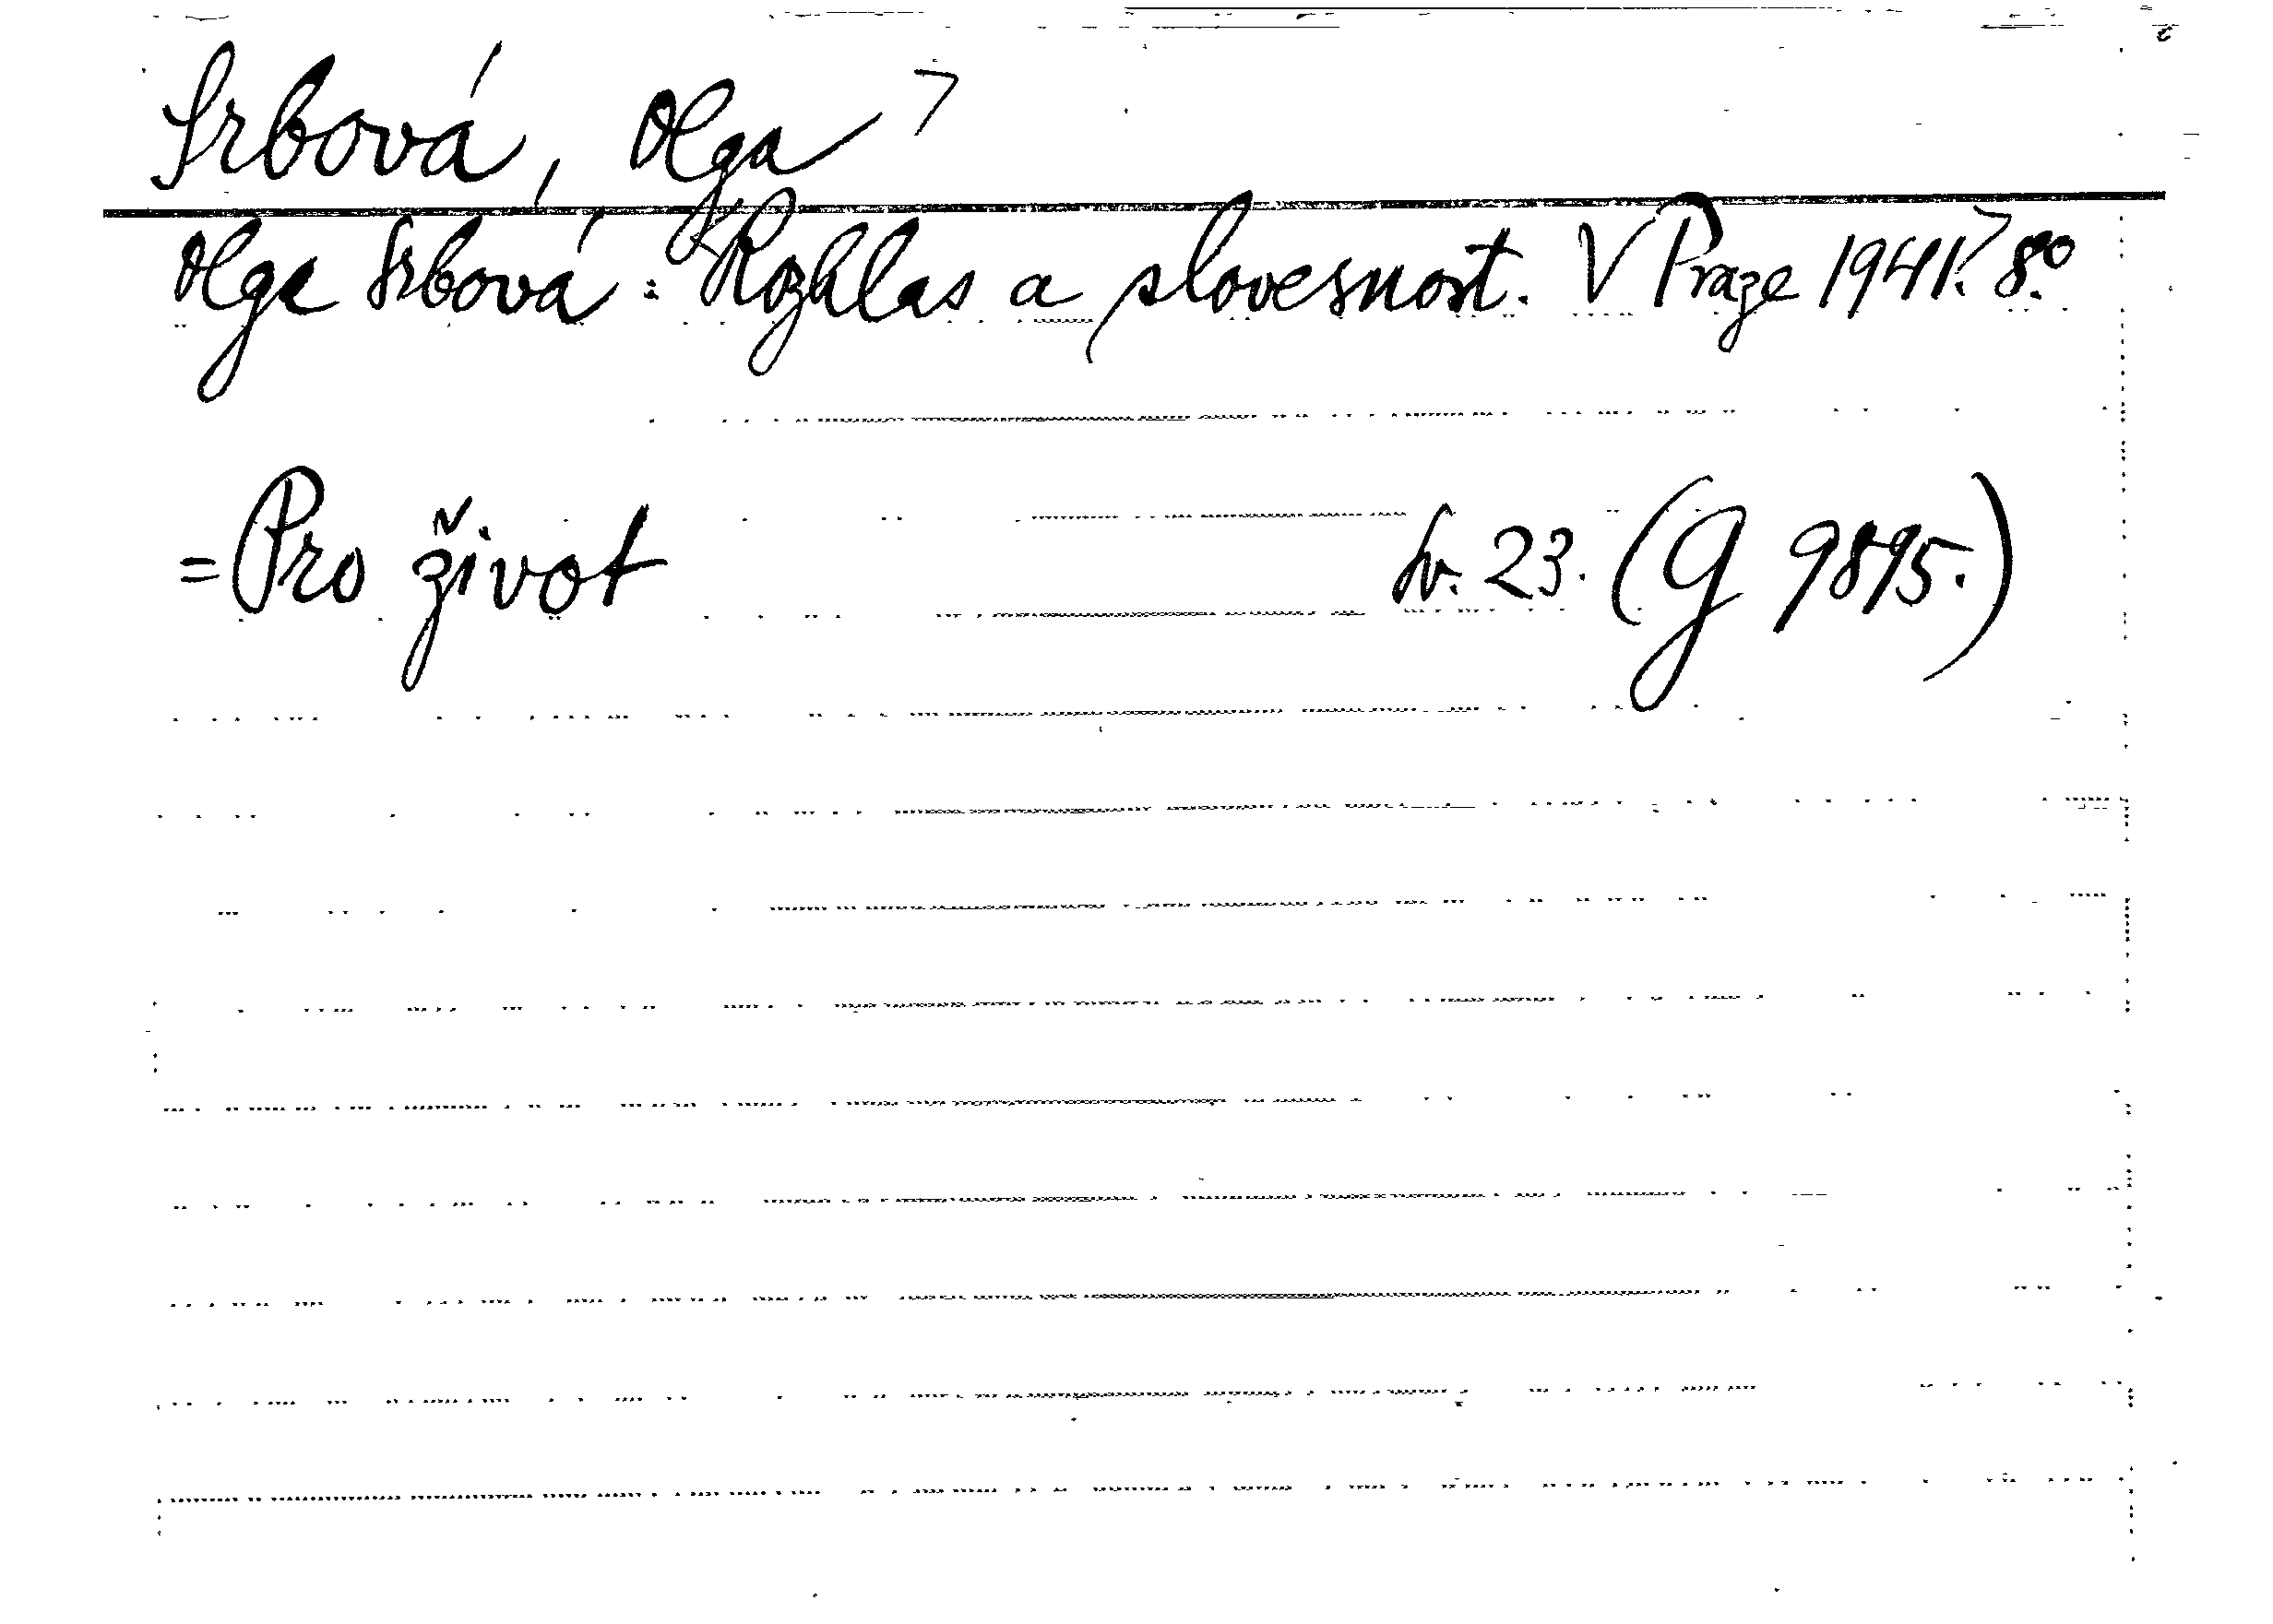 Srbová, Olga
Olga Srbová: Rozhlas a slovesnost. V Praze 1941. 8.°
=Pro život sv. 23. (G 9895.)